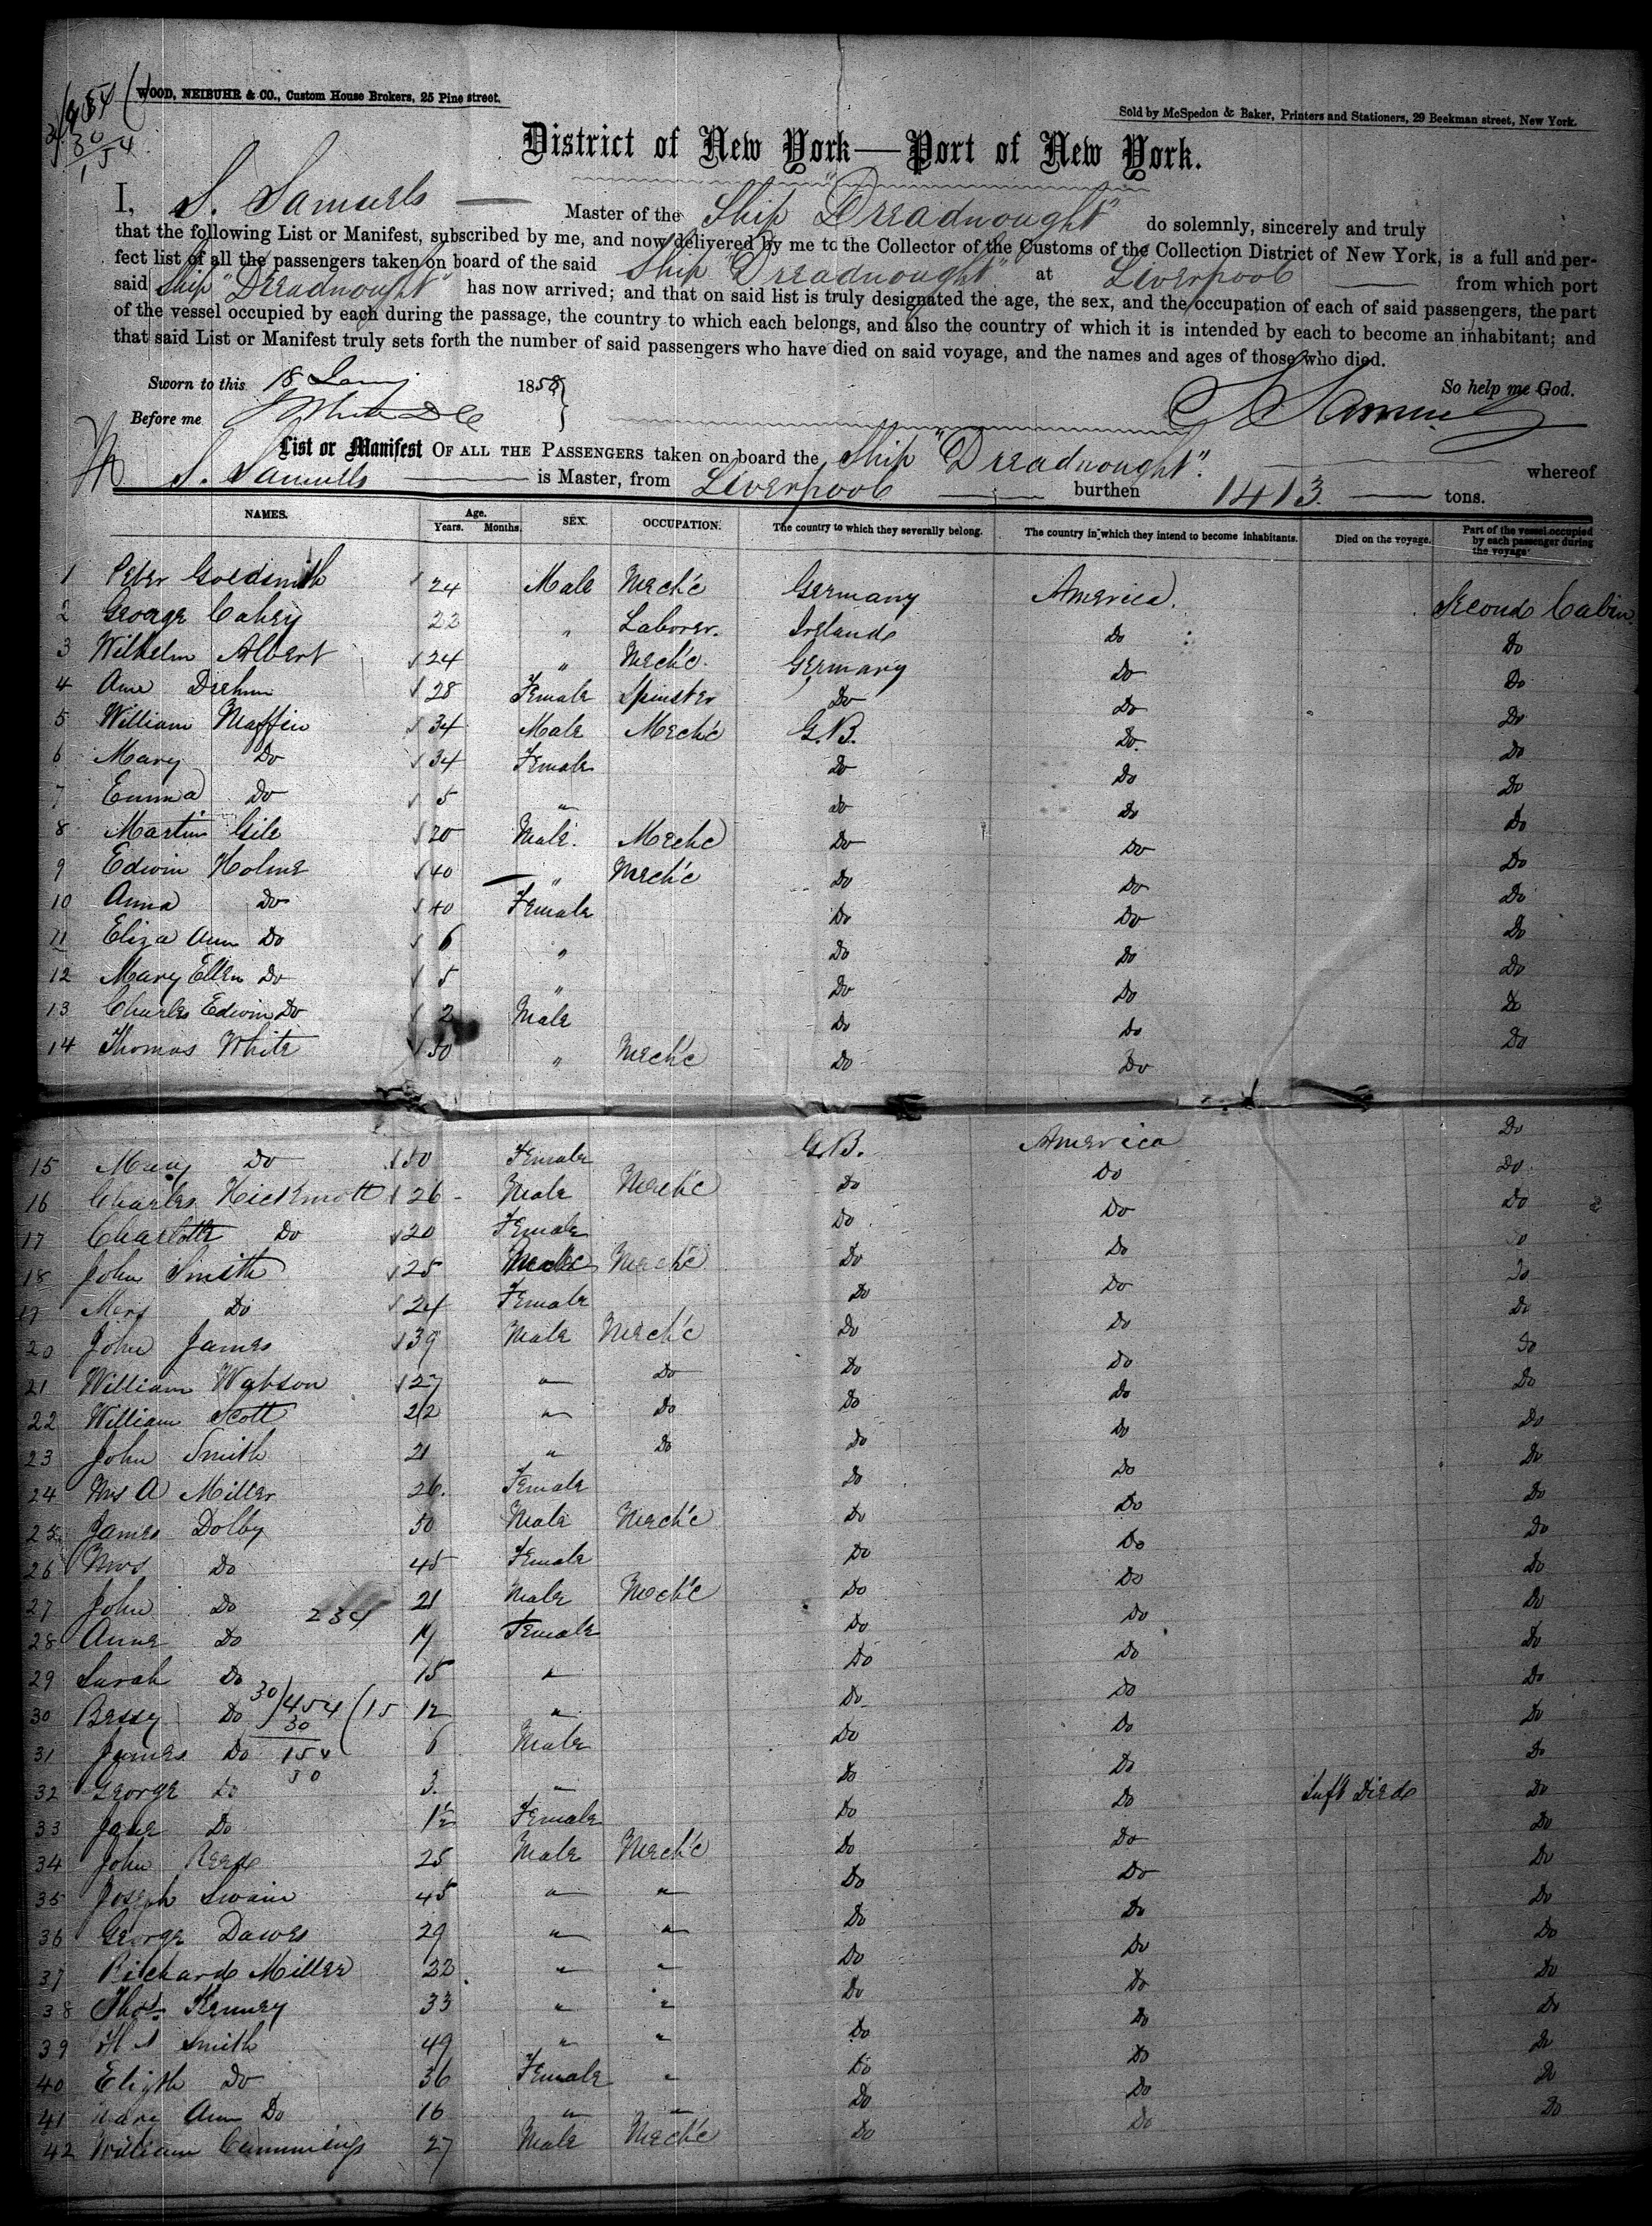 WOOD, NEIBUHR & CO., Custom House Brokers, 25 Pine street.
Sold by McSpedon & Baker, Printers and Stationers, 29 Beekman street, New York.
District of New York—Port of New York.
I, S. Samuels Master of the Ship "Dreadnought" do solemnly, sincerely and truly
that the following List or Manifest, subscribed by me, and now delivered by me to the Collector of the Customs of the Collection District of New York, is a full and per-
fect list of all the passengers taken on board of the said Ship "Dreadnought" at Liverpool from which port
said Ship "Dreadnought" has now arrived; and that on said list is truly designated the age, the sex, and the occupation of each of said passengers, the part
of the vessel occupied by each during the passage, the country to which each belongs, and also the country of which it is intended by each to become an inhabitant; and
that said List or Manifest truly sets forth the number of said passengers who have died on said voyage, and the names and ages of those who died.
Sworn to this 18 Jany 1858
So help me God.
Before me
S. Samuels
List or Manifest OF ALL THE PASSENGERS taken on board the Ship "Dreadnought". whereof
S. Samuells is Master, from Liverpool burthen 1413 tons.
NAMES. Age. Years. Months. SEX. OCCUPATION. The country to which they severally belong. The country in which they intend to become inhabitants. Died on the voyage. Part of the vessel occupied by each passenger during the voyage
1 Peter Goldsmith 24 Male Mech'c Germany America. Second Cabin
2 George Cahey 22 " Laborer. Ireland Do Do
3 Wilhelm Albert 24 " Mech'c. Germany Do Do
4 Ann 28 Female Spinster Do Do Do
5 William Maffin 34 Male Mech'c G.B. Do Do
6 Mary Do 34 Female Do Do Do
7 Emma Do 5 " Do Do Do
8 Martin Gile 20 Male. Mech'c Do Do Do
9 Edwin Holme 40 " Mech'c Do Do Do
10 Anna Do 40 Female Do Do Do
11 Eliza Ann Do 6 " Do Do Do
12 Mary Ellen Do 5 " Do Do Do
13 Charles Edwin Do 2 Male Do Do Do
14 Thomas White 50 " Mech'c Do Do Do
15 Mary Do 50 Female G.B. America Do
16 Charles Hickmott 26 Male Mech'c Do Do Do
17 Charlotte Do 20 Female Do Do Do
18 John Smith 25 Male Mech'c Do Do Do
19 Mary Do 24 Female Do Do Do
20 John James 39 Male Mech'c Do Do Do
21 William Watson 27 " Do Do Do Do
22 William Scott 22 " Do Do Do Do
23 John Smith 21 " Do Do Do Do
24 Mrs A Miller 26. Female Do Do Do
25 James Dolby 50 Male Mech'c Do Do Do
26 Mrs Do 45 Female Do Do Do
27 John Do 234 21 Male Mech'c Do Do Do
28 Anne Do 19 Female Do Do Do
29 Sarah Do 15 " Do Do Do
30 Bessy Do 30)454(15 12 " Do Do Do
30
31 James Do 154 6 Male Do Do Do
30
32 George Do 3. " Do Do Inft Died Do
33 Jane Do 1½ Female Do Do Do
34 John Reed 25 Male Mech'c Do Do Do
35 Joseph Swain 45 " " Do Do Do
36 George Dawes 29 " " Do Do Do
37 Richard Miller 22 " " Do Do Do
38 Thos. Kenney 33 " " Do Do Do
39 Smith 49 " " Do Do Do
40 Elizth Do 36 Female " Do Do Do
41 Mary Ann Do 16 " " Do Do Do
42 William Cummings 27 Male Mech'c Do Do Do